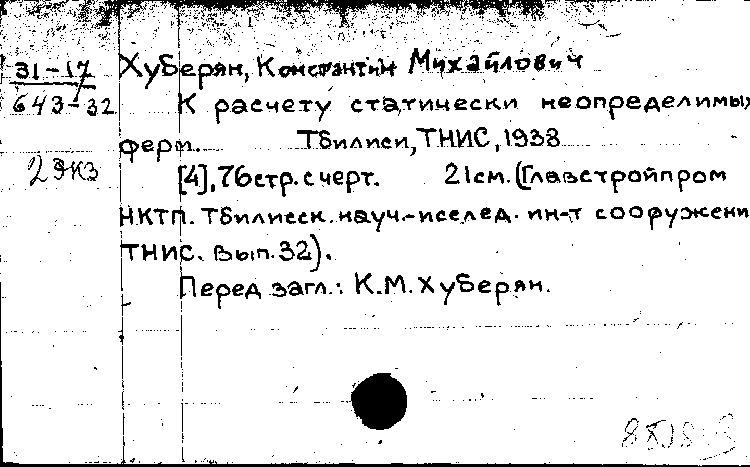 31-17
643-32
2 экз
Хуберян, Константин Михайлович
К расчету статически неопределимых
ферм. Тбилиси, ТНИС, 1938
[4], 76 стр. с черт. 21 см. (Главстройпром
НКТП. Тбилисск. науч.-исслед. ин-т сооружени
ТНИС. Вып. 32).
Перед загл.: К.М. Хуберян.